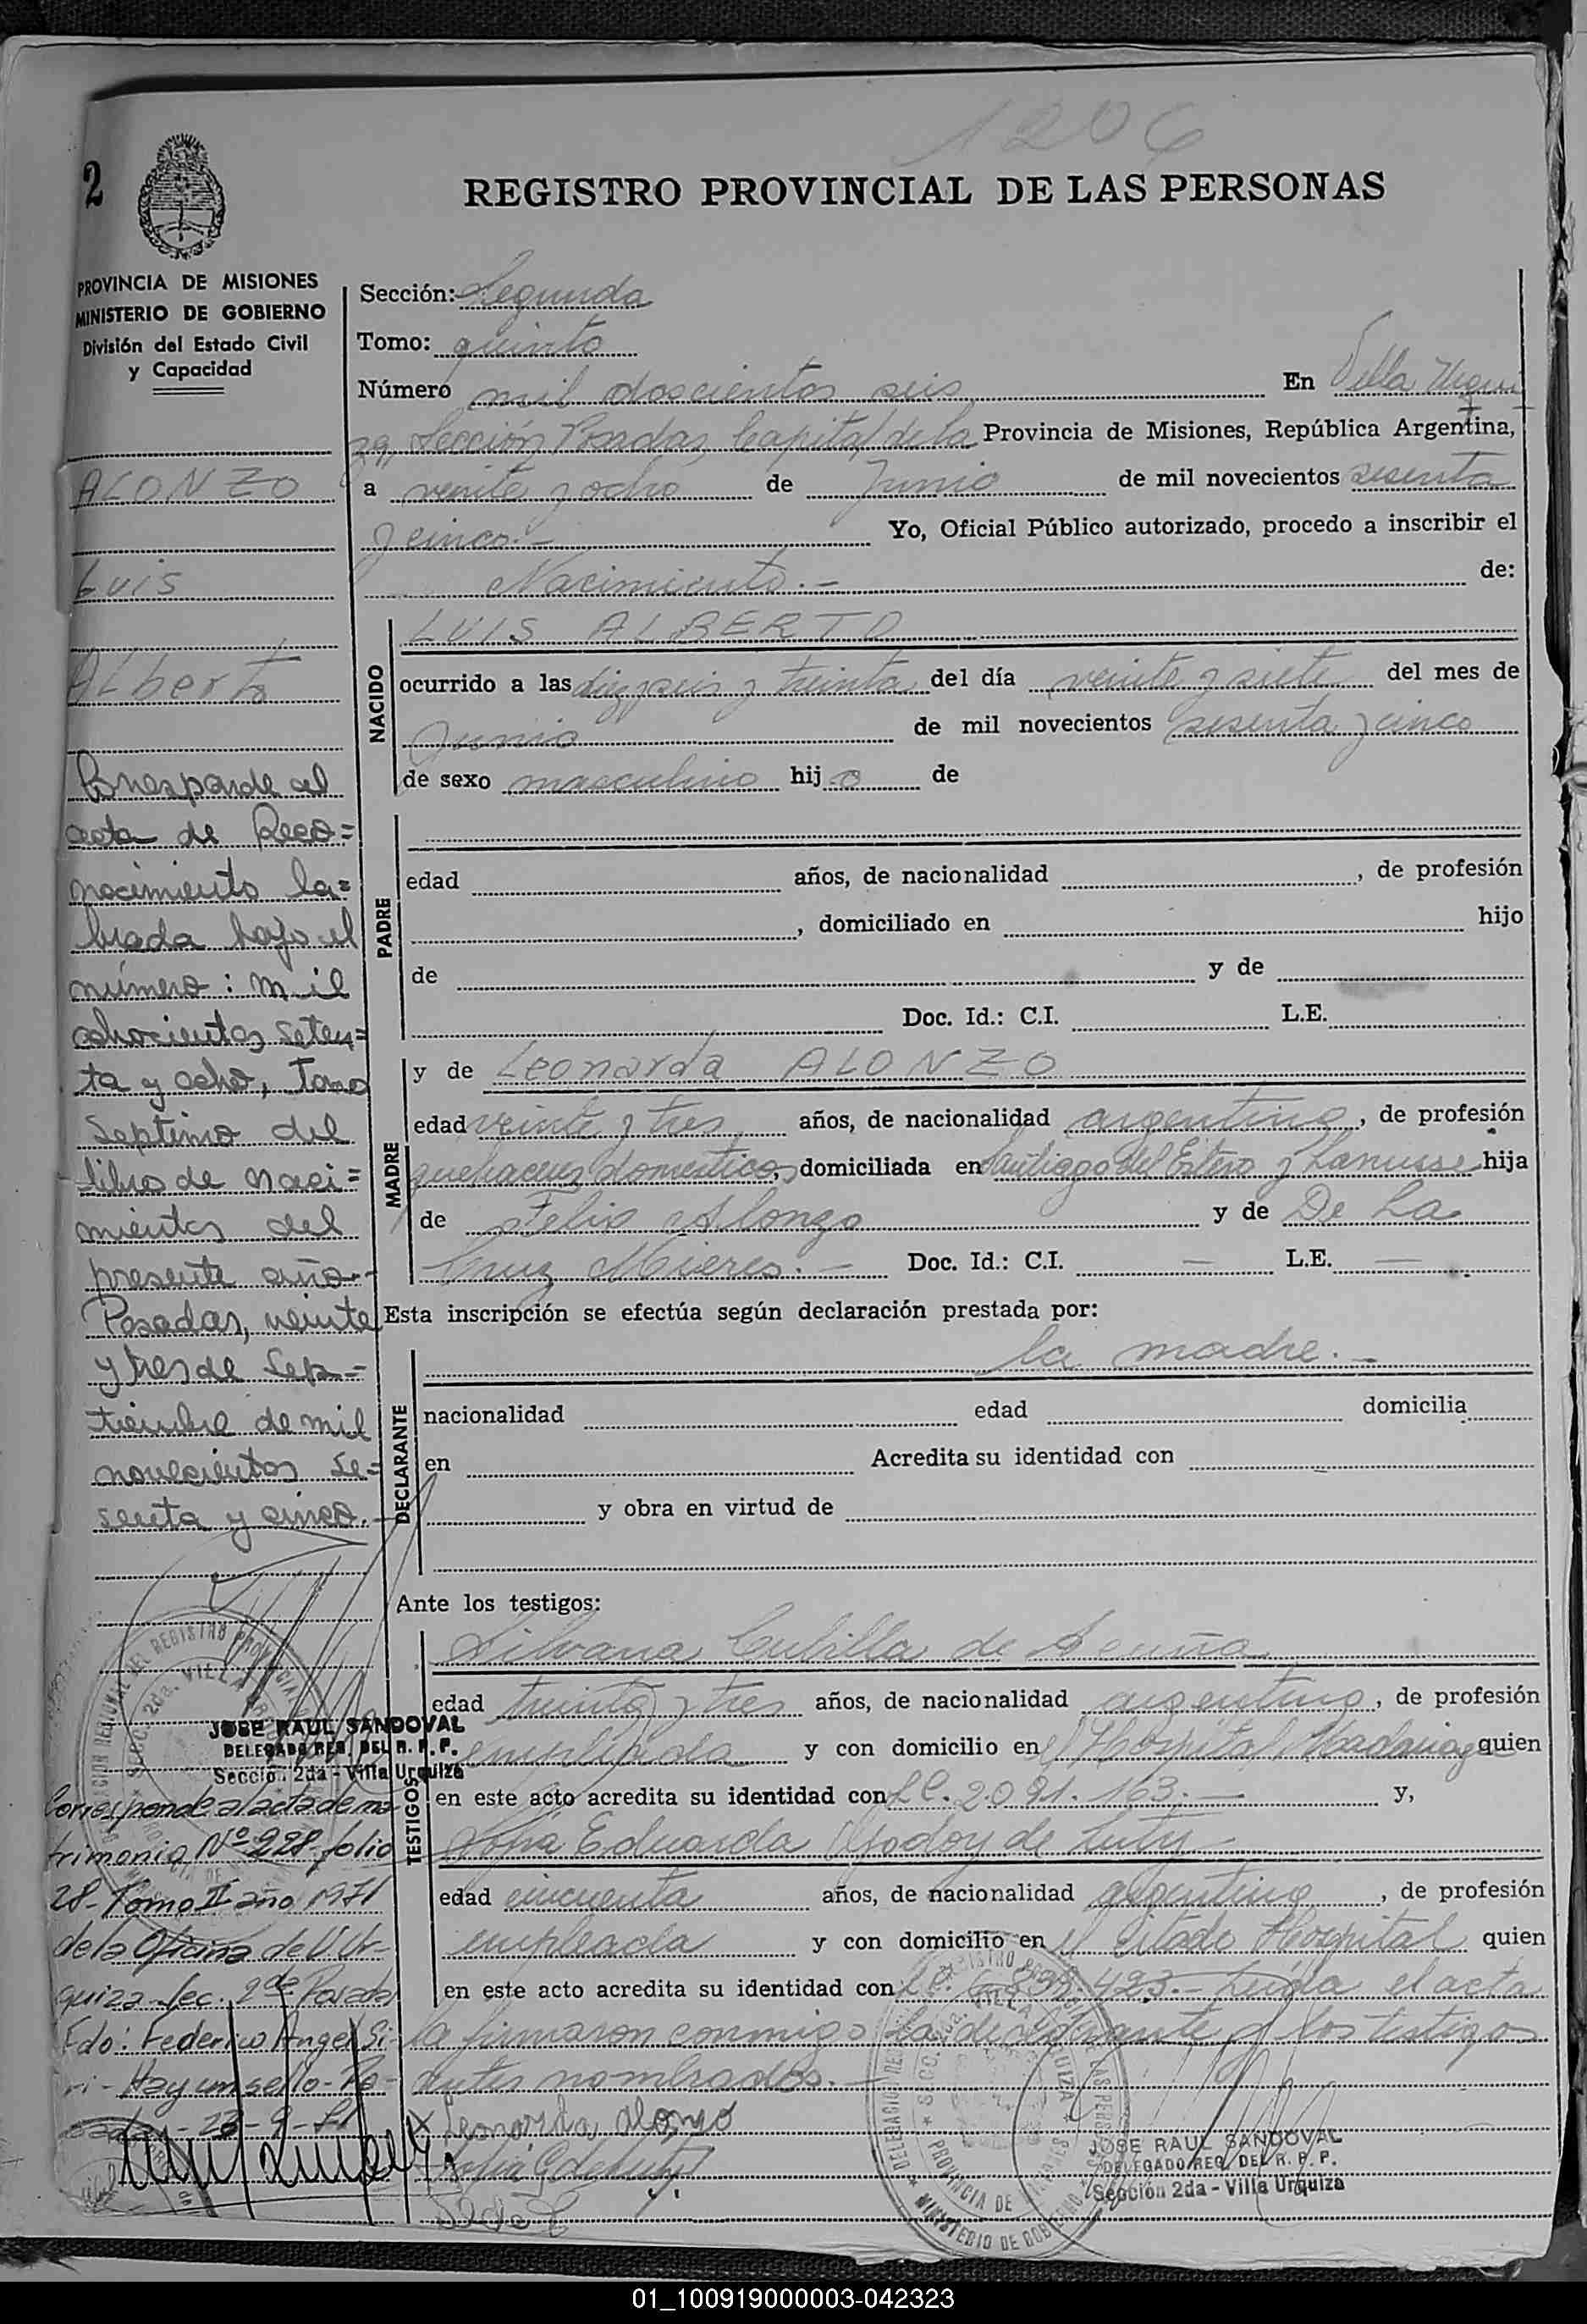 1206
2
REGISTRO PROVINCIAL DE LAS PERSONAS
PROVINCIA DE MISIONES
MINISTERIO DE GOBIERNO
División del Estado Civil
y Capacidad
ALONZO
Luis
Alberto
Corresponde al
acta de Reco=
nocimiento la=
brada bajo el
número: mil
ochocientos seten=
ta y ocho, Tomo
Septimo del
libro de naci=
mientos del
presente año.-
Posadas, veinte
y tres de Sep-
tiembre de mil
novecientos se=
senta y cinco.
JOSE RAUL SANDOVAL
DELEGADO REG. DEL R. P. P.
Sección 2da - Villa Urquiza
Corresponde al acta de ma
trimonio Nº 228-folio
28-Tomo II año 1971
de la Oficina de V. Ur-
quiza-Sec. 2da Posadas
Fdo: Federico Angel Si-
ri - Hay un sello-Po-
Sección: Segunda
Tomo: quinto
Número mil doscientos seis En Villa Urqui
za, Sección Posadas, Capital de la Provincia de Misiones, República Argentina,
a veinte y ocho de Junio de mil novecientos sesenta
y cinco.- Yo, Oficial Público autorizado, procedo a inscribir el
Nacimiento.- de:
NACIDO
LUIS ALBERTO
ocurrido a las diez y seis y treinta del día veinte y siete del mes de
Junio de mil novecientos sesenta y cinco
de sexo masculino hijo de
PADRE
edad años, de nacionalidad , de profesión
, domiciliado en hijo
de y de
Doc. Id.: C.I. L.E.
MADRE
y de Leonarda ALONZO
edad veinte y tres años, de nacionalidad argentina, de profesión
quehaceres domesticos, domiciliada en Santiago del Estero y Lanusse hija
de Felix Alonzo y de De La
Cruz Mieres.- Doc. Id.: C.I. — L.E. —
Esta inscripción se efectúa según declaración prestada por:
DECLARANTE
la madre.-
nacionalidad edad domicilia
en Acredita su identidad con
y obra en virtud de
Ante los testigos:
TESTIGOS
Silvana Cubilla de Acuña
edad treinta y tres años, de nacionalidad argentina, de profesión
empleada y con domicilio en Hospital Madariaga quien
en este acto acredita su identidad con LC. 2.091.163.- y,
Sofia Eduarda Godoy de Luty
edad cincuenta años, de nacionalidad argentina, de profesión
empleada y con domicilio en el citado Hospital quien
en este acto acredita su identidad con 423.- Leida el acta
la firmaron conmigo la declarante y los testigos
antes nombrados.-
Leonarda Alonzo
JOSE RAUL SANDOVAL
DELEGADO REG. DEL R. P. P.
Sección 2da - Villa Urquiza
01_100919000003-042323